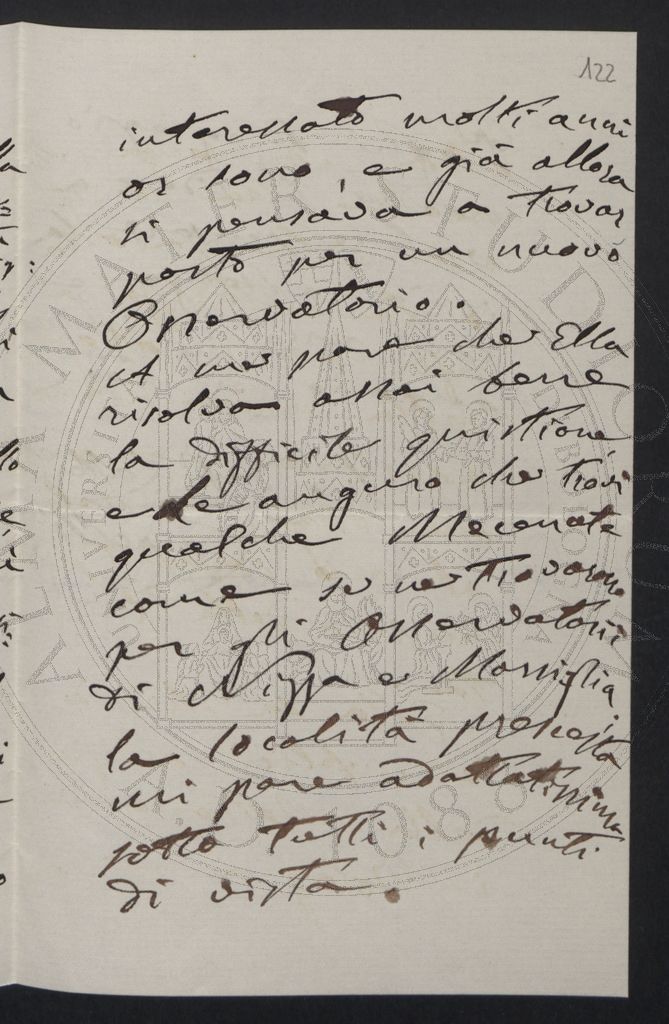 122
interessato molti anni
or sono, e già allora
si pensava a trovar
posto per un nuovo
Osservatorio.
A me pare che Ella
risolva assai bene
la difficile quistione
e le auguro che trovi
qualche Mecenate
come se ne trovarono
per gli Osservatorii
di Nizza e Marsiglia;
la località prescelta
mi pare adattatissima
sotto tutti i punti
di vista.
ALMA MATER STUDIORUM
A.D. 1088